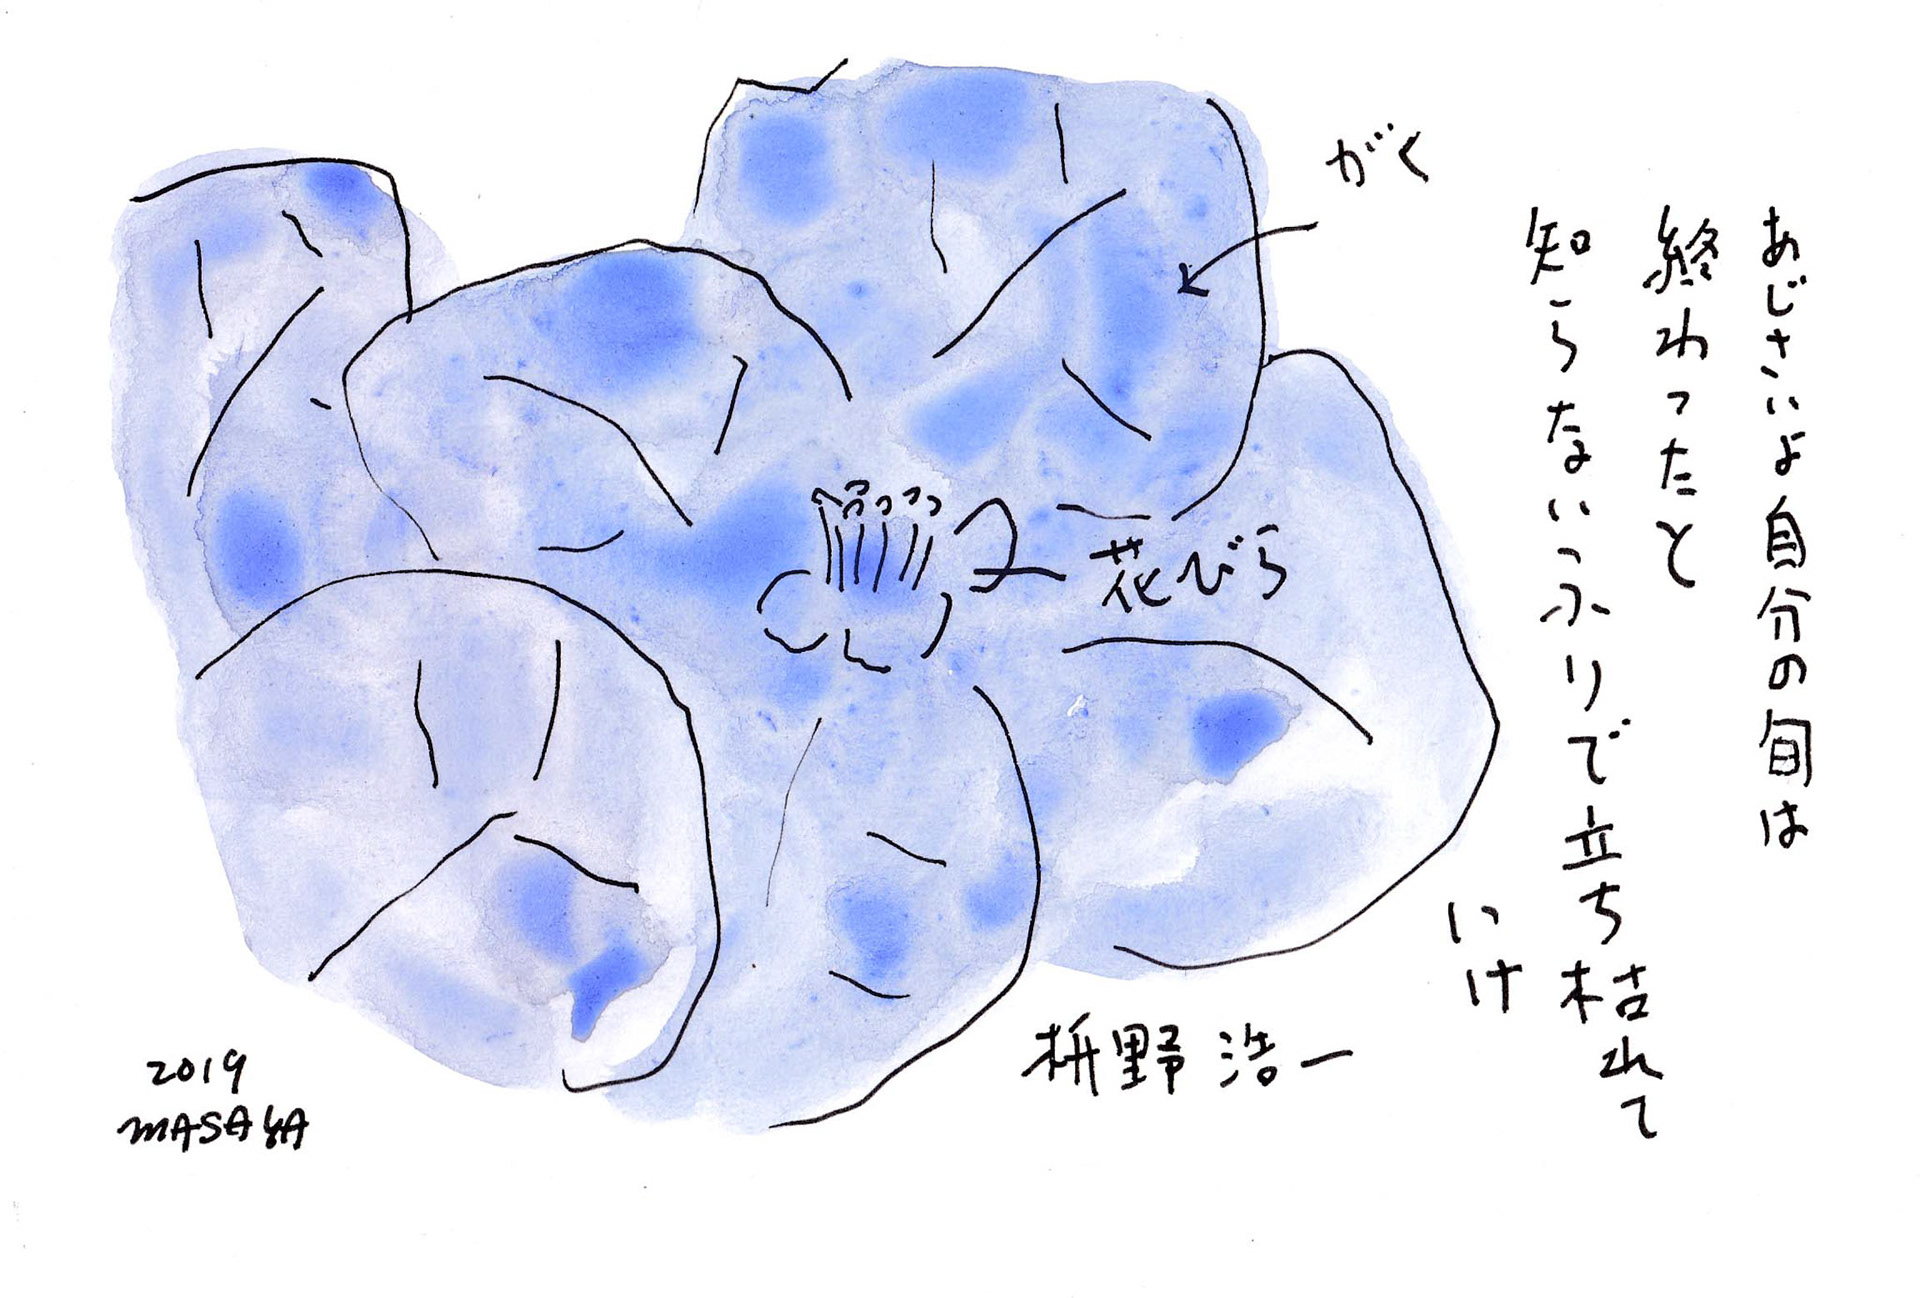 あじさいよ自分の旬は
終わったと
知らないふりで立ち枯れて
いけ
枡野浩一
がく
花びら
2019
MASAYA